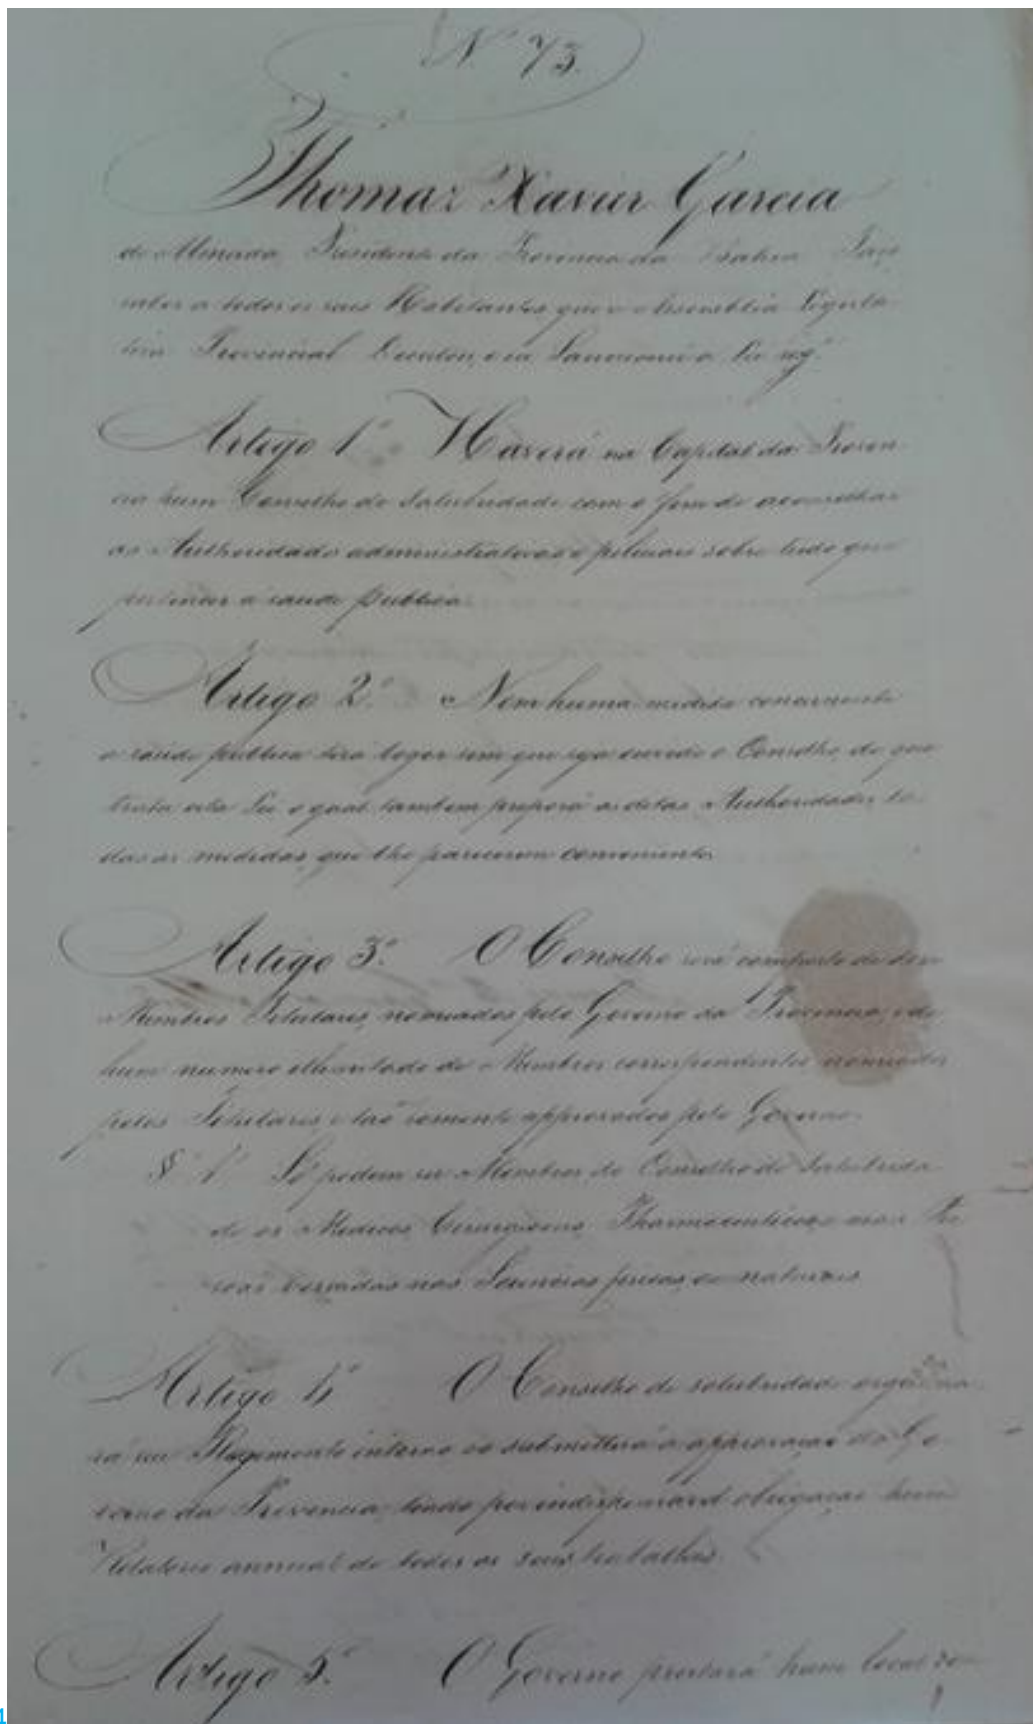 N.º 73.
Thomaz Xavier Garcia
de Almeida, Presidente da Provincia da Bahia Faço
saber a todos os seus Habitantes que a Assembléa Legisla-
tiva Provincial Decretou, e eu Sanccionei a Lei seg.e
Artigo 1.º Haverá na Capital da Provin-
cia hum Conselho de Salubridade com o fim de aconselhar
as Authoridades administrativas e policiaes sobre tudo que
pertencer á saude publica.
Artigo 2.º Nemhuma medida concernente
a saude publica terá logar sem que seja ouvido o Conselho, de que
trata esta Lei o qual tambem proporá as ditas Authoridades to-
das as medidas, que lhe parecerem convenientes.
Artigo 3.º O Conselho será composto de
Membros Titulares, nomeados pelo Governo da Provincia, e de
hum numero illimitado de Membros correspondentes nomeados
pelos Titulares, e tão somente approvados pelo Governo.
§ 1.º Só podem ser Membros do Conselho de Salubrida-
de os Medicos, Cirurgioens, Pharmaceuticos, e as Pes-
soas versadas nas Sciencias fisicas, e naturaes.
Artigo 4.º O Conselho de salubridade organisa-
rá seu Regimento interno e o submetterá a approvação do Go-
verno da Provincia, tendo por indispensavel obrigação hum
Relatorio annual de todos os seus trabalhos.
Artigo 5.º O Governo prestará hum local
1